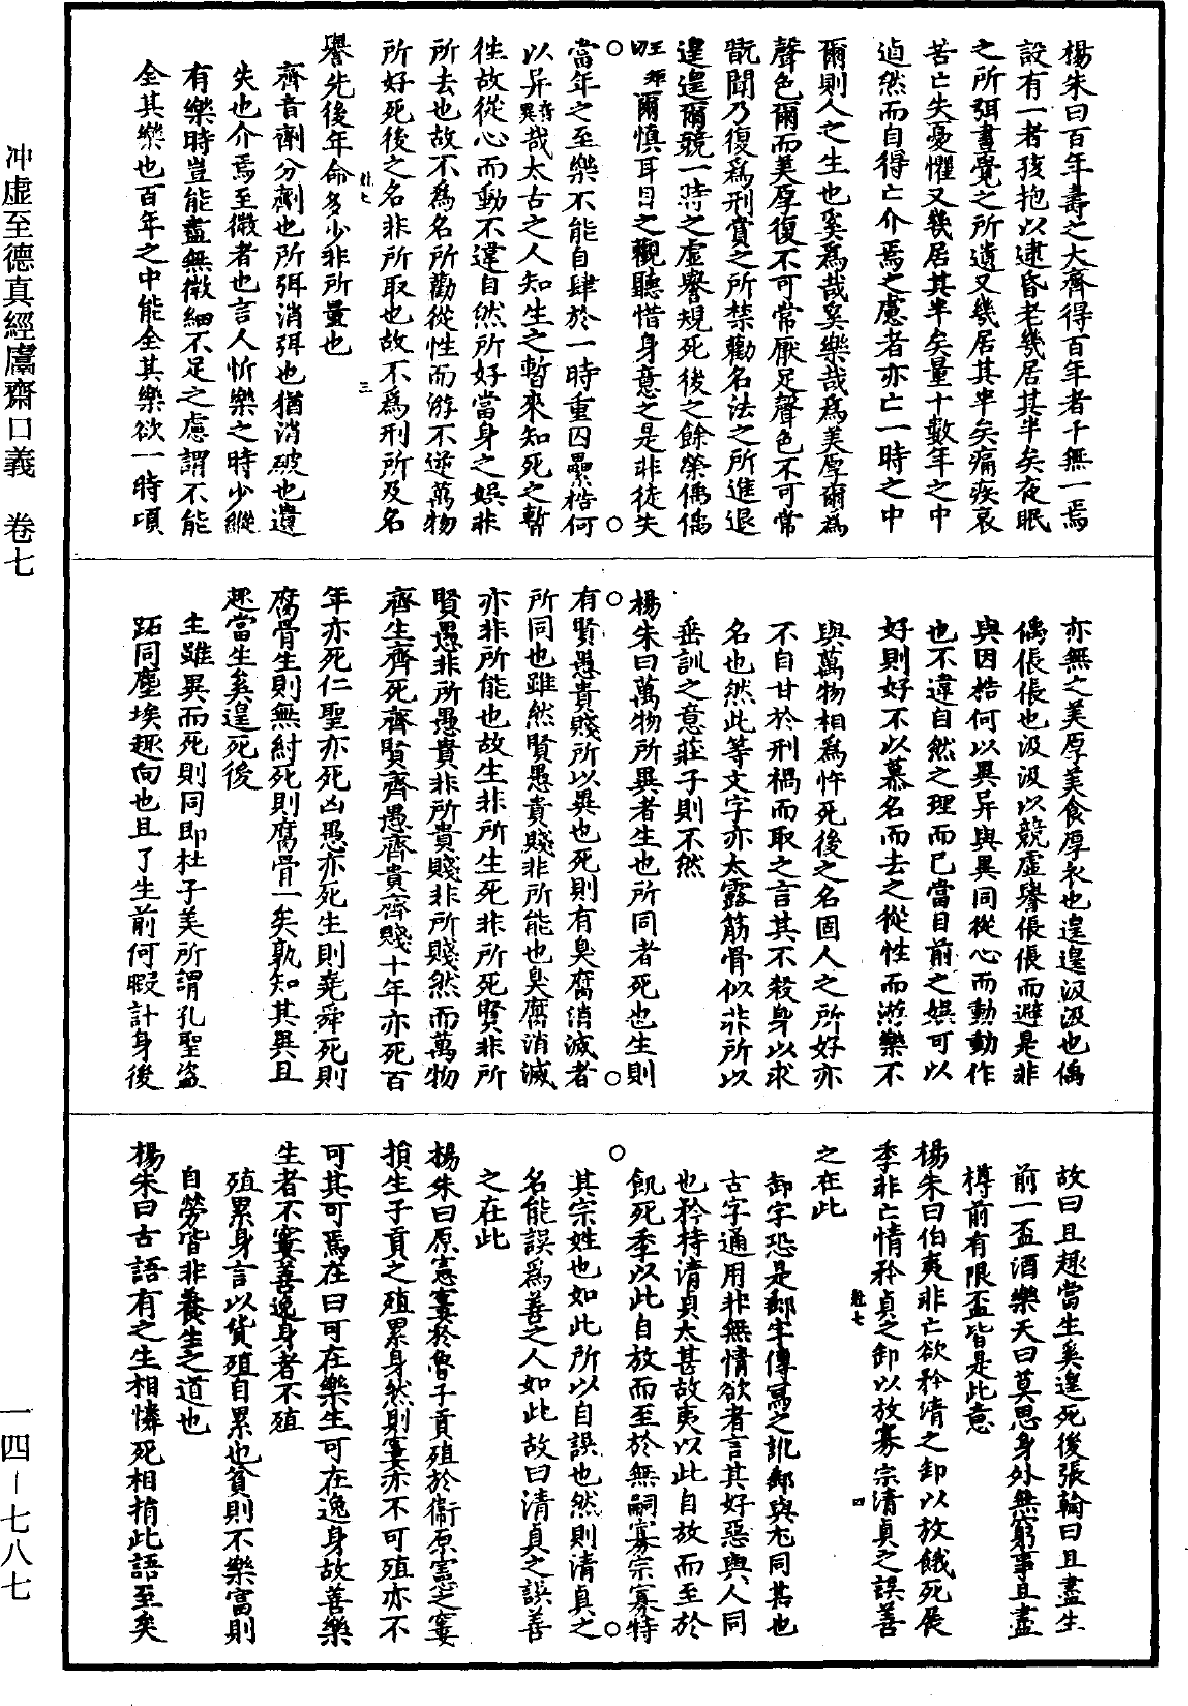 冲虛至德真經鬳齋口義　卷七
一四－七八七
楊朱曰百年壽之大齊得百年者千無一焉
設有一者孩抱以逮昏老幾居其半矣夜眠
之所弭晝覺之所遺又幾居其半矣痛疾哀
苦亡失憂懼又幾居其半矣量十數年之中
逌然而自得亡介焉之慮者亦亡一時之中
爾則人之生也奚為哉奚樂哉為美厚爾為
聲色爾而美厚復不可常厭足聲色不可常
翫聞乃復為刑賞之所禁勸名法之所進退
遑遑爾競一時之虛譽規死後之餘榮偊偊
爾慎耳目之觀聽惜身意之是非徒失
當年之至樂不能自肆於一時重囚纍梏何
以异哉太古之人知生之暫來知死之暫
徃故從心而動不違自然所好當身之娛非
所去也故不為名所勸從性而游不逆萬物
所好死後之名非所取也故不為刑所及名
譽先後年命多少非所量也
三
齊音劑分劑也所弭消弭也猶消破也遺
失也介焉至微者也言人忻樂之時少縱
有樂時豈能盡無微細不足之慮謂不能
全其樂也百年之中能全其樂欲一時頃
亦無之美厚美食厚衣也遑遑汲汲也偊
偊倀倀也汲汲以競虛譽倀倀而避是非
與囚梏何以異异與異同從心而動動作
也不違自然之理而已當目前之娛可以
好則好不以慕名而去之從性而游樂不
與萬物相為忤死後之名固人之所好亦
不自甘於刑禍而取之言其不殺身以求
名也然此等文字亦太露筋骨似非所以
垂訓之意莊子則不然
楊朱曰萬物所異者生也所同者死也生則
有賢愚貴賤所以異也死則有臭腐消滅者
所同也雖然賢愚貴賤非所能也臭腐消滅
亦非所能也故生非所生死非所死賢非所
賢愚非所愚貴非所貴賤非所賤然而萬物
齊生齊死齊賢齊愚齊貴齊賤十年亦死百
年亦死仁聖亦死凶愚亦死生則堯舜死則
腐骨生則桀紂死則腐骨一矣孰知其異且
趣當生奚遑死後
生雖異而死則同即杜子美所謂孔聖盜
跖同塵埃趣向也且了生前何暇計身後
故曰且趣當生奚遑死後張翰曰且盡生
前一盃酒樂天曰莫思身外無窮事且盡
樽前有限盃皆是此意
楊朱曰伯夷非亡欲矜清之卸以放餓死展
季非亡情矜貞之卸以放寡宗清貞之誤善
之在此
四
卸字恐是郵字傳寫之訛郵與尤同甚也
古字通用非無情欲者言其好惡與人同
也矜持清貞太甚故夷以此自放而至於
飢死季以此自放而至於無嗣寡宗寡特
其宗姓也如此所以自誤也然則清貞之
名能誤為善之人如此故曰清貞之誤善
之在此
楊朱曰原憲窶於魯子貢殖於衞原憲之窶
損生子貢之殖累身然則窶亦不可殖亦不
可其可焉在曰可在樂生可在逸身故善樂
生者不窶善逸身者不殖
殖累身言以貨殖自累也貧則不樂富則
自勞皆非養生之道也
楊朱曰古語有之生相憐死相捐此語至矣